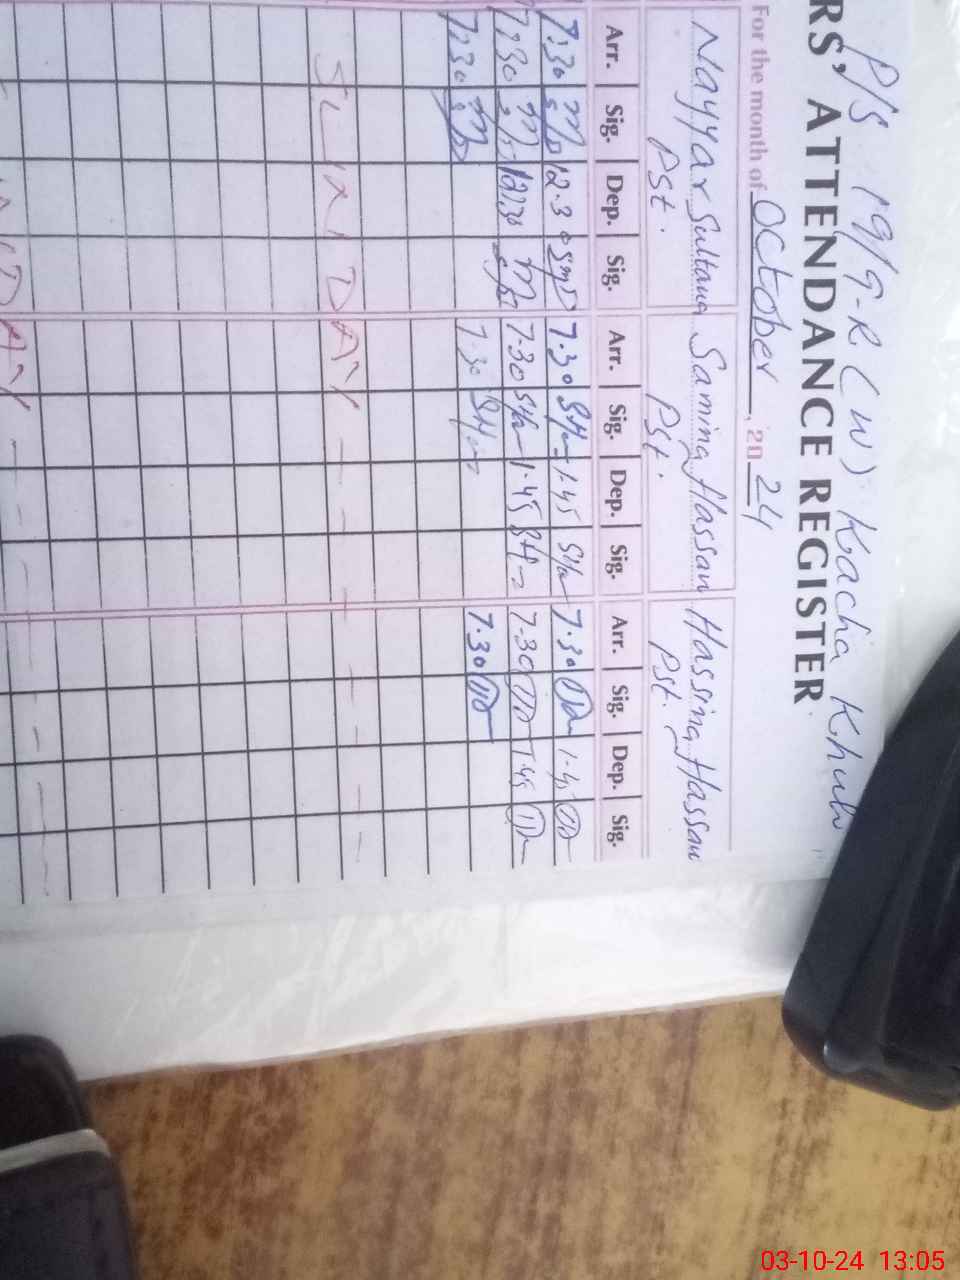 P/S 19/9-R (W) Kacha Khuh
RS' ATTENDANCE REGISTER
For the month of October, 2024
Nayyar Sultana Samina Hassan Hassina Hassan
Pst. Pst. Pst.
Arr. Sig. Dep. Sig. Arr. Sig. Dep. Sig. Arr. Sig. Dep. Sig.
7:30 12.30 7.30 1.45 7.30 1.45
7:30 12:30 7.30 1.45 7.30 1.45
7:30 7.30 7.30
SUNDAY
NDAY
03-10-24 13:05